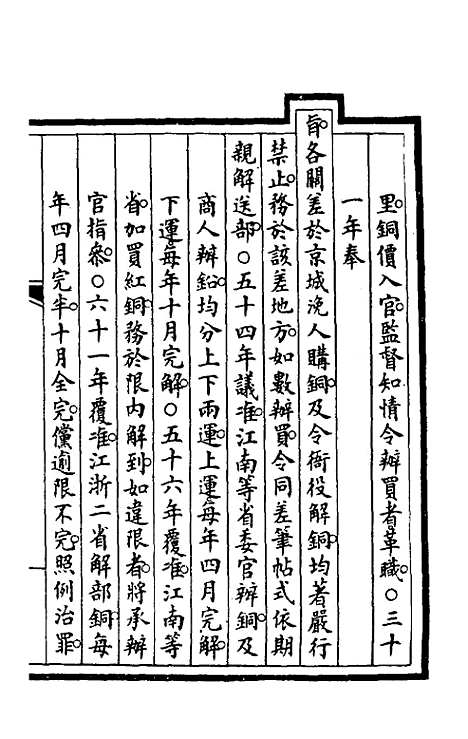 里。銅價入官。監督知情令辦買者革職。○三十
一年奉
旨。各關差於京城浼人購銅。及令衙役解銅。均著嚴行
禁止。務於該差地方。如數辦買。令同差筆帖式依期
親解送部。○五十四年議准。江南等省委官辦銅。及
商人辦鉛。均分上下兩運。上運每年四月完解。
下運每年十月完解。○五十六年覆准。江南等
省。加買紅銅。務於限內解到。如違限者。將承辦
官指參。○六十一年覆准。江浙二省解部銅。每
年四月完半。十月全完。儻逾限不完。照例治罪。